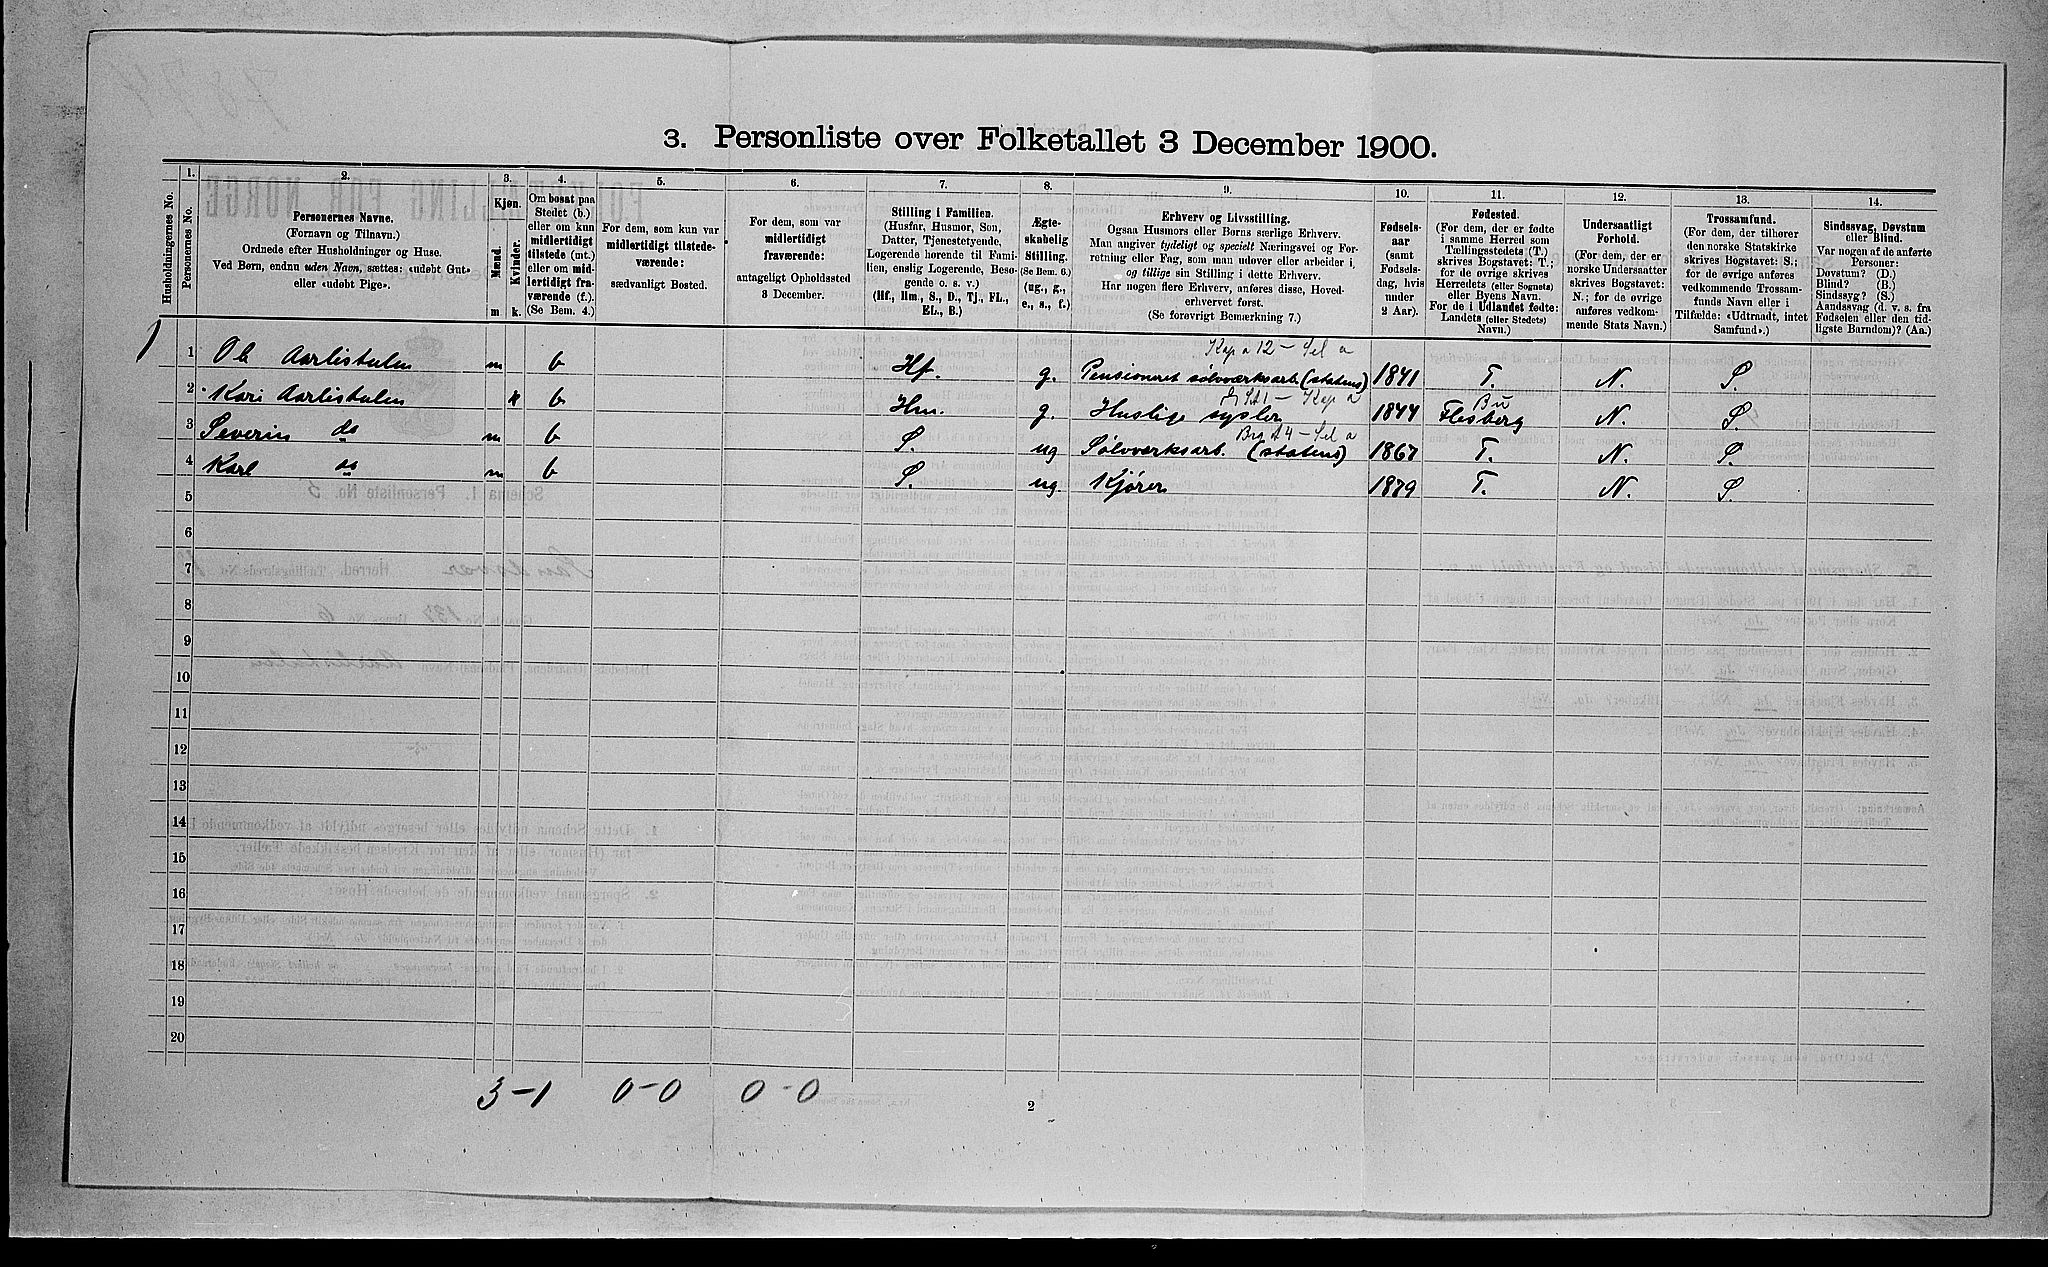 3. Personliste over Folketallet 3 December 1900.
1. 2. 3. 4. 5. 6. 7. 8. 9. 10. 11. 12. 13. 14.
Husholdningernes No.
Personernes No.
Personernes Navne.
(Fornavn og Tilnavn.)
Ordnede efter Husholdninger og Huse.
Ved Børn, endnu uden Navn, sættes: «udøbt Gut»
eller «udøbt Pige».
Kjøn.
Mænd. Kvinder.
m. k.
Om bosat paa
Stedet (b.)
eller om kun
midlertidigt
tilstede (mt.)
eller om mid-
lertidigt fra-
værende (f.).
(Se Bem. 4.)
For dem, som kun var
midlertidigt tilstede-
værende:
sædvanligt Bosted.
For dem, som var
midlertidigt
fraværende:
antageligt Opholdssted
3 December.
Stilling i Familien.
(Husfar, Husmor, Søn,
Datter, Tjenestetyende,
Logerende hørende til Fami-
lien, enslig Logerende, Besø-
gende o. s. v.)
(Hf., Hm., S., D., Tj., FL.,
EL., B.)
Ægte-
skabelig
Stilling.
(Se Bem. 6.)
(ug., g.,
e., s., f.)
Erhverv og Livsstilling.
Ogsaa Husmors eller Børns særlige Erhverv.
Man angiver tydeligt og specielt Næringsvei og For-
retning eller Fag, som man udøver eller arbeider i,
og tillige sin Stilling i dette Erhverv.
Har nogen flere Erhverv, anføres disse, Hoved-
erhvervet først.
(Se forøvrigt Bemærkning 7.)
Fødsels-
aar
(samt
Fødsels-
dag, hvis
under
2 Aar).
Fødested.
(For dem, der er fødte
i samme Herred som
Tællingsstedets (T.)
skrives Bogstavet: T.;
for de øvrige skrives
Herredets (eller Sognets)
eller Byens Navn.
For de i Udlandet fødte:
Landets (eller Stedets)
Navn.)
Undersaatligt
Forhold.
(For dem, der er
norske Undersaatter
skrives Bogstavet:
N.; for de øvrige
anføres vedkom-
mende Stats Navn.)
Trossamfund.
(For dem, der tilhører
den norske Statskirke
skrives Bogstavet: S.;
for de øvrige anføres
vedkommende Trossam-
funds Navn eller i
Tilfælde: «Udtraadt, intet
Samfund».)
Sindssvag, Døvstum
eller Blind.
Var nogen af de anførte
Personer:
Døvstum? (D.)
Blind? (B.)
Sindssyg? (S.)
Aandssvag (d. v. s. fra
Fødselen eller den tid-
ligste Barndom)? (Aa.)
Kap a 12 – Sel a
1 1 Ole Aarlistulen m b Hf. g. Pensioneret sølvværksarb. (statens) 1841 T. N. S.
Kap a
Bu
2 Kari Aarlistulen k b Hm. g. Huslige sysler 1844 Flesberg N. S.
Brg A4 – Sel a
3 Severin do m b S. ug Sølvværksarb. (statens) 1867 T. N. S.
4 Karl do m b S. ug. Kjører 1879 T. N. S.
5
6
7
8
9
10
11
12
13
14
15
16
17
18
19
20
3–1 0–0 0–0
2